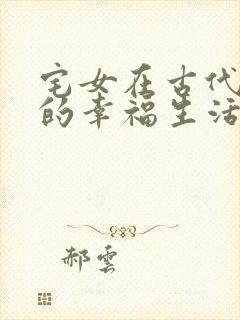 宅女在古代
的幸福生活
郝雲